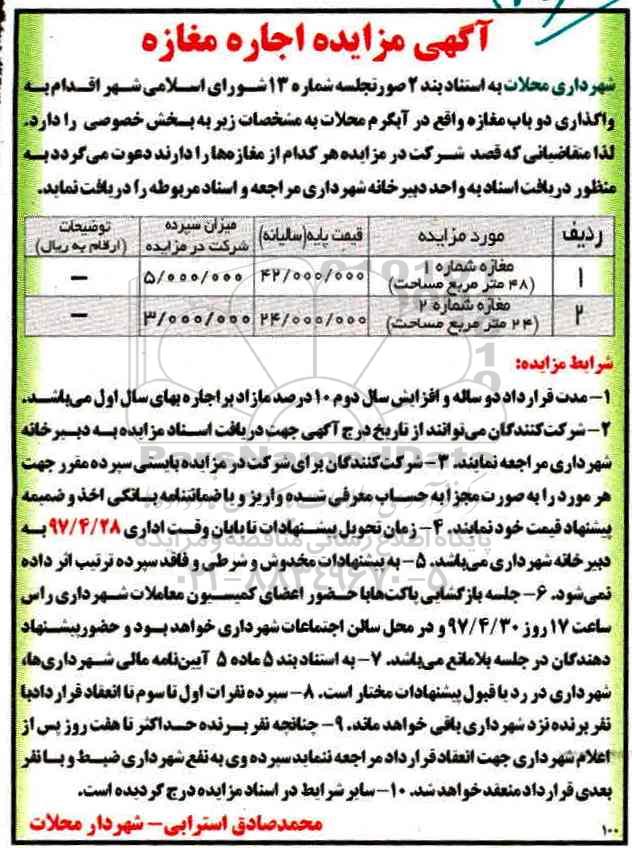 آگهی مزایده اجاره مغازه
شهرداری محلات به استناد بند ۲ صورتجلسه شماره ۱۳ شورای اسلامی شهر اقدام به
واگذاری دو باب مغازه واقع در آبگرم محلات به مشخصات زیر به بخش خصوصی را دارد.
لذا متقاضیانی که قصد شرکت در مزایده هر کدام از مغازه‌ها را دارند دعوت می‌گردد به
منظور دریافت اسناد به واحد دبیرخانه شهرداری مراجعه و اسناد مربوطه را دریافت نماید.
ردیف مورد مزایده قیمت پایه(سالیانه) میزان سپرده شرکت در مزایده توضیحات (ارقام به ریال)
۱ مغازه شماره ۱ (۴۸ متر مربع مساحت) ۴۲/۰۰۰/۰۰۰ ۵/۰۰۰/۰۰۰ –
۲ مغازه شماره ۲ (۲۴ متر مربع مساحت) ۲۴/۰۰۰/۰۰۰ ۳/۰۰۰/۰۰۰ –
شرایط مزایده:
۱- مدت قرارداد دو ساله و افزایش سال دوم ۱۰ درصد مازاد بر اجاره بهای سال اول می‌باشد.
۲- شرکت‌کنندگان می‌توانند از تاریخ درج آگهی جهت دریافت اسناد مزایده به دبیرخانه
شهرداری مراجعه نمایند. ۳- شرکت‌کنندگان برای شرکت در مزایده بایستی سپرده مقرر جهت
هر مورد را به صورت مجزا به حساب معرفی شده واریز و یا ضمانتنامه بانکی اخذ و ضمیمه
پیشنهاد قیمت خود نمایند. ۴- زمان تحویل پیشنهادات تا پایان وقت اداری ۹۷/۴/۲۸ به
دبیرخانه شهرداری می‌باشد. ۵- به پیشنهادات مخدوش و شرطی و فاقد سپرده ترتیب اثر داده
نمی‌شود. ۶- جلسه بازگشایی پاکت‌ها با حضور اعضای کمیسیون معاملات شهرداری راس
ساعت ۱۷ روز ۹۷/۴/۳۰ و در محل سالن اجتماعات شهرداری خواهد بود و حضور پیشنهاد
دهندگان در جلسه بلامانع می‌باشد. ۷- به استناد بند ۵ ماده ۵ آیین‌نامه مالی شهرداری‌ها،
شهرداری در رد یا قبول پیشنهادات مختار است. ۸- سپرده نفرات اول تا سوم تا انعقاد قرارداد با
نفر برنده نزد شهرداری باقی خواهد ماند. ۹- چنانچه نفر برنده حداکثر تا هفت روز پس از
اعلام شهرداری جهت انعقاد قرارداد مراجعه ننماید سپرده وی به نفع شهرداری ضبط و با نفر
بعدی قرارداد منعقد خواهد شد. ۱۰- سایر شرایط در اسناد مزایده درج گردیده است.
محمدصادق استرابی- شهردار محلات
۱۰۰
ParsNamadData
پایگاه اطلاع رسانی مناقصه و مزایده
۰۲۱-۸۸۳۴۹۶۷۰-۵